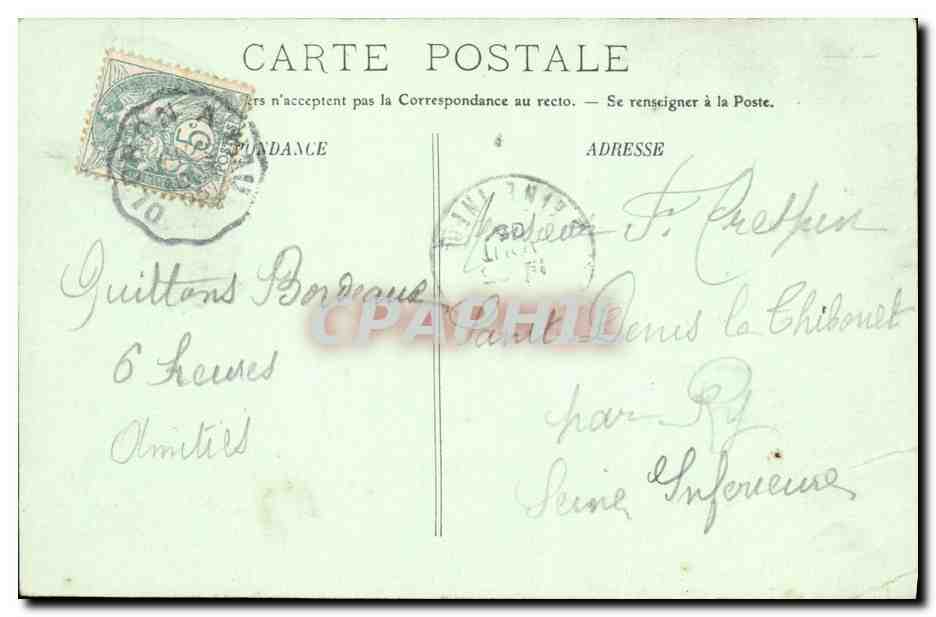 CARTE POSTALE
ers n'acceptent pas la Correspondance au recto. — Se renseigner à la Poste.
PONDANCE
ADRESSE
5
Monsieur F. Crespin
Quittons Bordeaux
Saint-Denis le Thiboult
CPAPHIL
6 heures
Amitiés
par Ry
Seine Inferieure